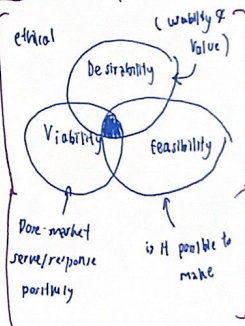 ethical
(usability &
value)
Desirability
Viability
feasibility
Dose market
serve/response
positively
is it possible to
make